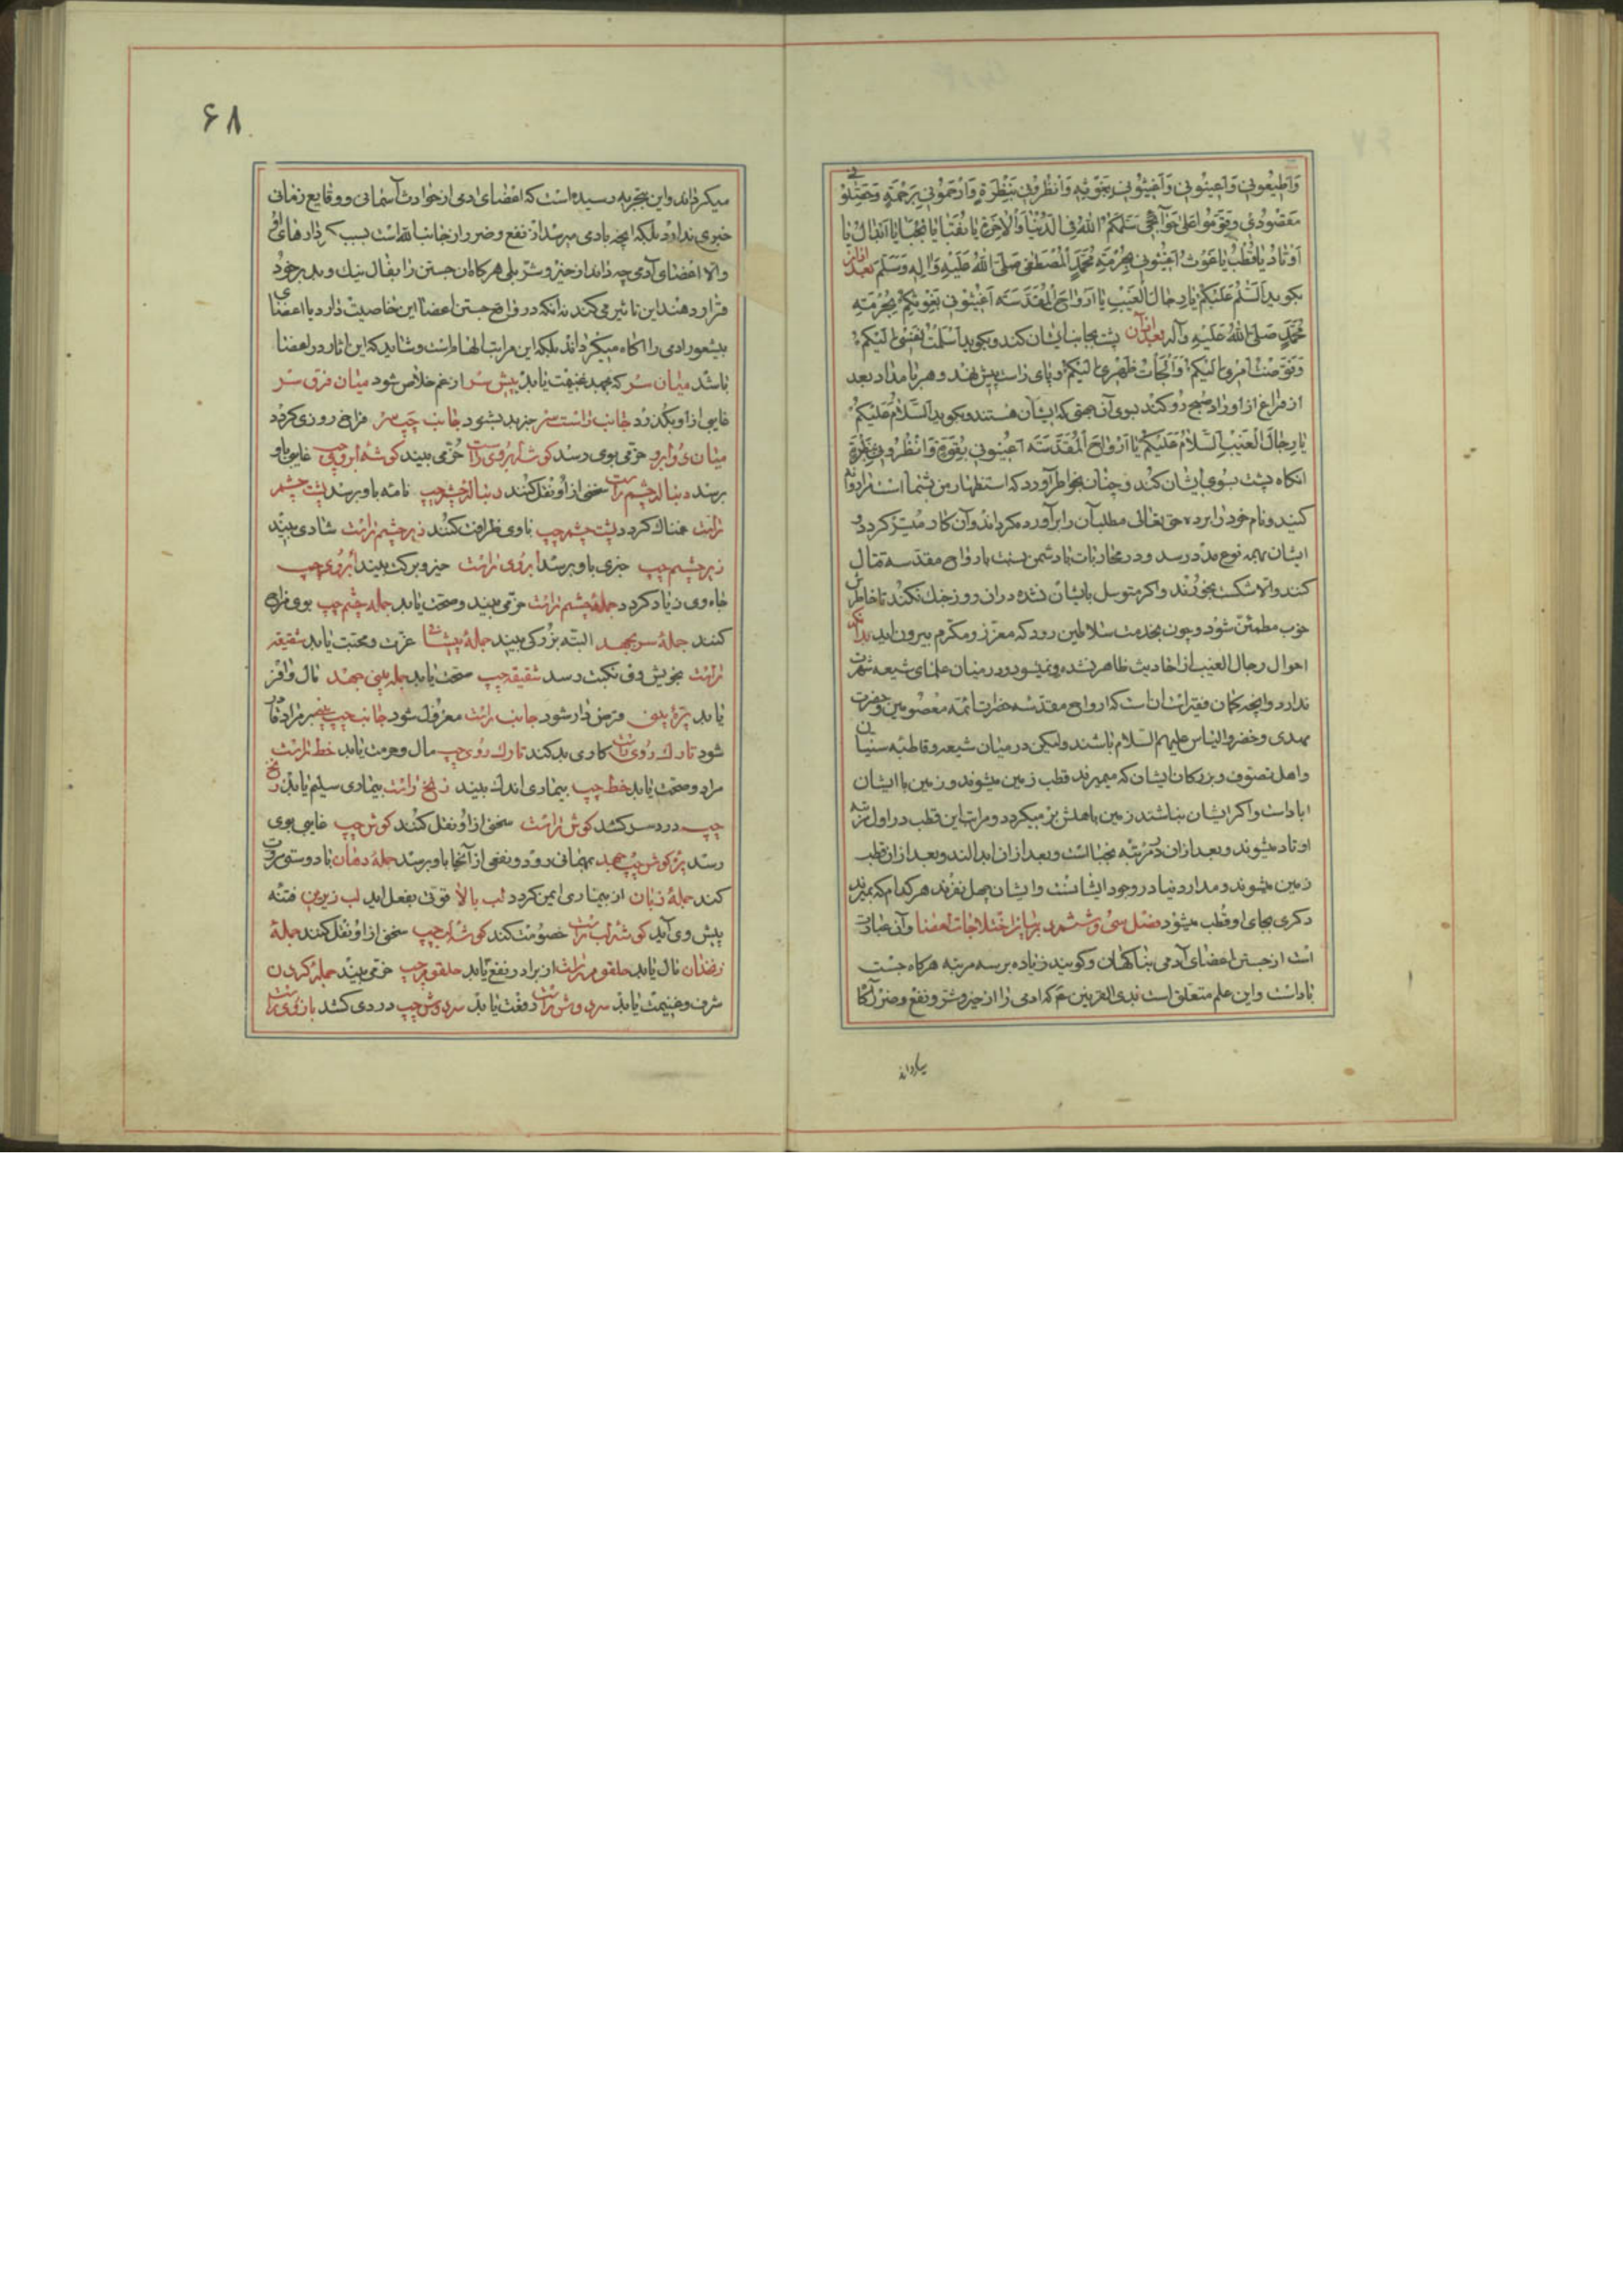 وَاَطیعُونی وَاَعینُونی وَاَغیثُونی بِغَوثِهِ وَانْظُرُونی بِنَظْرَةٍ وَارْحَمُونی بِرَحْمَةٍ وَحَصِّلُوا
مَقصُودی وَقَوِّمُوا عَلیٰ سَلَّمَکُمُ اللهُ فِی الدُّنْیا وَالْاٰخِرَةِ یا نُقَبا یا نُجَبا یا اَبْدال یا
اَوْتادُ یا قُطْبُ یا غَوْثُ اَغیثُونی بِحُرْمَةِ مُحَمَّدٍ الْمُصْطَفی صَلَّی اللهُ عَلَیْهِ وَ اٰلِهِ وَسَلَّمَ بعد ازان
بکوید اَلسَّلٰمُ عَلَیْکُمْ یا رِجالَ الْغَیْبِ یا اَرْواحَ الْمُقَدَّسَة اَغیثُونی بِغَوْثِکُمْ بِحُرْمَةِ
مُحَمَّدٍ صَلَّی اللهُ عَلَیْهِ وَآله بعد ازان پشت بجانب ایشان کند و بکوید اَسْلَمْتُ نَفْسی اِلَیْکُمْ
وَفَوَّضْتُ اَمْری اِلَیْکُمْ وَاَلْجَأْتُ ظَهْری اِلَیْکُمْ و پای راست پیش نهد و هر بامداد بعد
از فراغ از اوراد صبح رو کند بسوی آنجهتی که ایشان هستند و بکوید اَلسَّلامُ عَلَیْکُمْ
یا رِجالَ الْغَیْبِ اَلسَّلامُ عَلَیْکُمْ یا اَرْواحَ الْمُقَدَّسَة اَعینُونی بِقُوَّةٍ وَانْظُرُونی بِنَظْرَةٍ
انکاه پشت بسوی ایشان کند و چنان بخواطر آورد که استظهار من بشما است مراد
کنید و نام خود را برد حق تعالی مطلب آن را برآورده کرداند و آن کار میسّر کردد و
ایشان بهمه نوع مدد رسد و در محاربات با دشمن پشت بارواح مقدّسه قتال
کنند والا شکست بخورند و اکر متوسل بایشان نشده دران روز جنک نکند تا خاطرش
خوب مطمئن شود و چون بخدمت سلاطین رود که معزّز و مکرم بیرون اید بدانکه
احوال رجال الغیب از احادیث ظاهر نشده و نمیشود و در میان علمای شیعه شهرت
ندارد و انچه کمان فقیر است ان است که ارواح مقدّسه حضرات ائمه معصومین و حضرت
مهدی و خضر و الیاس علیهم السّلام باشند ولیکن در میان شیعه و قاطبه سنیان
و اهل تصوّف و بزرکان ایشان که میمیرند قطب زمین میشوند و زمین با ایشان
اباد است و اکر ایشان نباشند زمین باهلش میکردد و مراتب این قطب در اول مرتبه
اوتاد میشوند و بعد ازان در مرتبه نجبا است و بعد ازان ابدالند و بعد ازان قطب
زمین میشوند و مدار دنیا در وجود ایشانست و ایشان چهل نفرند هر کدام که بمیرند
دکری بجای او قطب میشود فصل سی و ششم در بیان اختلاجات اعضا و آن عبارت
است از جستن اعضای آدمی بناکهان و کویند زیاده بر سه مرتبه هرکاه جست
باد است و این علم متعلق است بذی القرنین ع که ادمی را از خیر و شر و نفع و ضرر آکاه
میکرداند
۶۸
میکرداند و این بتجربه رسیده است که اعضای ادمی از حوادث آسمانی و وقایع زمانی
خبری ندارد بلکه انچه بادمی میرسد از نفع و ضرر از جانب الله است بسبب کردارهای او
والا اعضای آدمی چه داند از خیر و شر بلی هرکاه ان جستن را بفال نیک و بد بر خود
قرار دهند این تاثیر می کند نه انکه در واقع جستن اعضا این خاصیت دارد یا اعضای
بیشعور ادمی را اکاه میکرداند بلکه این مراتب الهامات است و شاید که این اثار در اعضا
باشد میان سر که بجهد غنیمت یابد پیش سر از غم خلاص شود میان فرق سر
غایبی از او بکذرد جانب راست سر خبر بد بشنود جانب چپ سر فراخ روزی کردد
میان دو ابرو خرّمی بوی رسد کوشه ابروی راست خرّمی بیند کوشه ابروی چپ غایبی باو
برسد دنباله چشم راست سخنی از او نقل کنند دنباله چشم چپ نامه باو برسد پشت چشم
راست غمناک کردد پشت چشم چپ باوی ظرافت کنند زیر چشم راست شادی بیند
زیر چشم چپ خبری باو برسد ابروی راست خیر و برکت بیند ابروی چپ
جاه وی زیاد کردد جمله چشم راست خرّمی بیند و صحّت یابد جمله چشم چپ بوی مزاح
کنند جمله سر بجهد البته بزرکی بیند جمله پیشانی عزّت و محبّت یابد شقیقه
راست بخویش وی نکبت رسد شقیقه چپ صحّت یابد جمله بینی جهد مال وافر
یابد پرّه بینی قرض دار شود جانب راست معزول شود جانب چپ بر مراد قادر
شود تارک روی راست کاری بد کند تارک روی چپ مال و حرمت یابد خط راست
مراد و صحّت یابد خط چپ بیماری اندک بیند زنخ راست بیماری سلیم یابد زنخ
چپ درد سر کشد کوش راست سخنی از او نقل کنند کوش چپ غایبی بوی
رسد پرّه کوش چپ جهد بمهمانی رود و نفعی از آنجا باو برسد جمله دهان با دوستی
کند جمله زبان از بیماری ایمن کردد لب بالا قوتی بفعل اید لب زیرین فتنه
پیش وی آید کوشه لب راست خصومت کند کوشه لب چپ سخنی از او نقل کنند جمله
زنخدان مال یابد حلقوم راست از برادر نفع یابد حلقوم چپ خرّمی بیند جمله کردن
شرف و غنیمت یابد سر دوش راست رفعت یابد سر دوش چپ دردی کشد بازوی راست